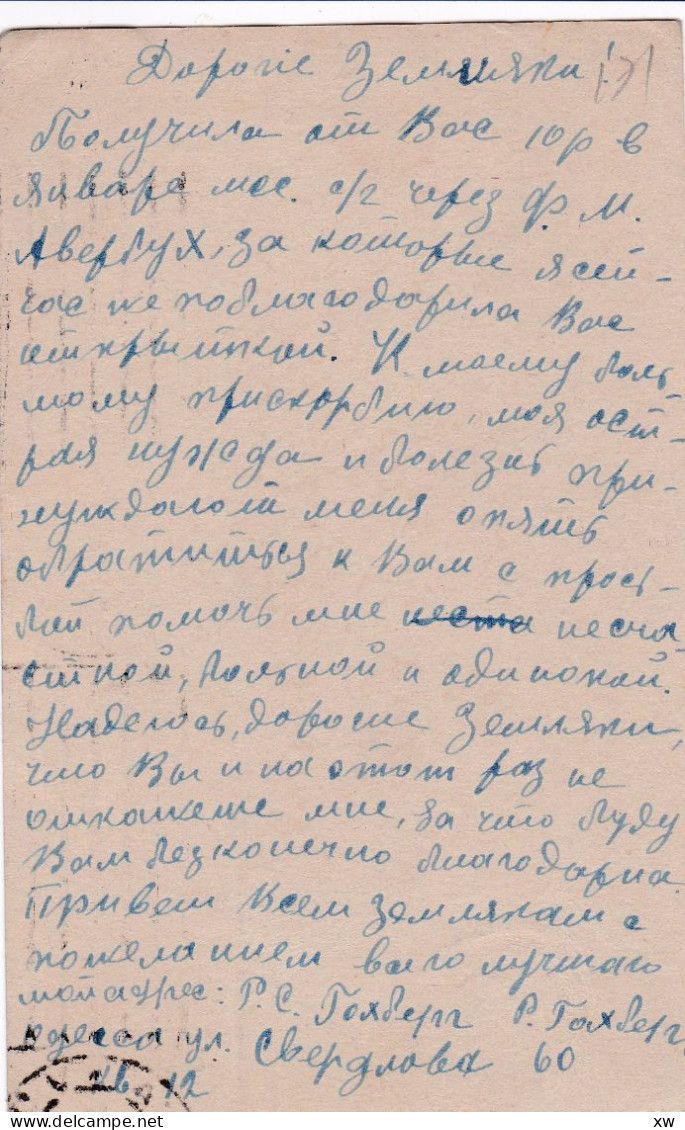 Дорогие Земляки!
Получила от Вас 10р в
январе мес. с/г через Ф. М.
Авербух, за которые я сей-
час же поблагодарила Вас
открыткой. К моему боль-
шому прискорбию, моя ост-
рая нужда и болезнь при-
нуждают меня опять
обратиться к Вам с прось-
бой помочь мне несча
стной, больной и одинокой.
Надеюсь, дорогие Земляки,
что Вы и на этот раз не
откажете мне, за что буду
Вам безконечно благодарна.
Привет Всем землякам с
пожеланием всего лучшего
мой адрес: Р. С. Гохберг Р. Гохберг
Одесса ул. Свердлова 60
кв 12
xw